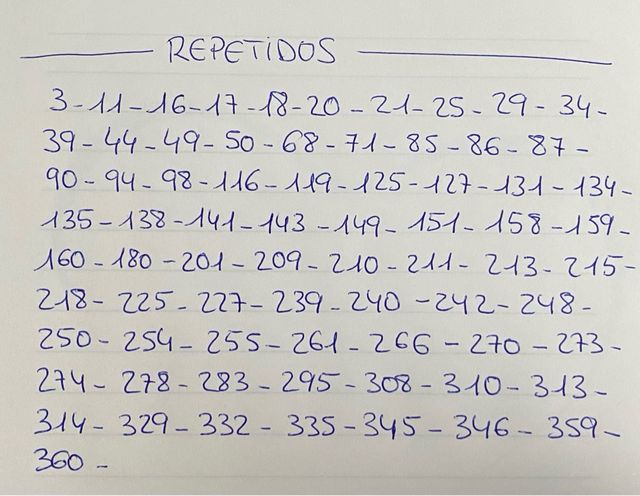 REPETIDOS
3-11-16-17-18-20-21-25-29-34-
39-44-49-50-68-71-85-86-87-
90-94-98-116-119-125-127-131-134-
135-138-141-143-149-151-158-159-
160-180-201-209-210-211-213-215-
218-225-227-239-240-242-248-
250-254-255-261-266-270-273-
274-278-283-295-308-310-313-
314-329-332-335-345-346-359-
360-